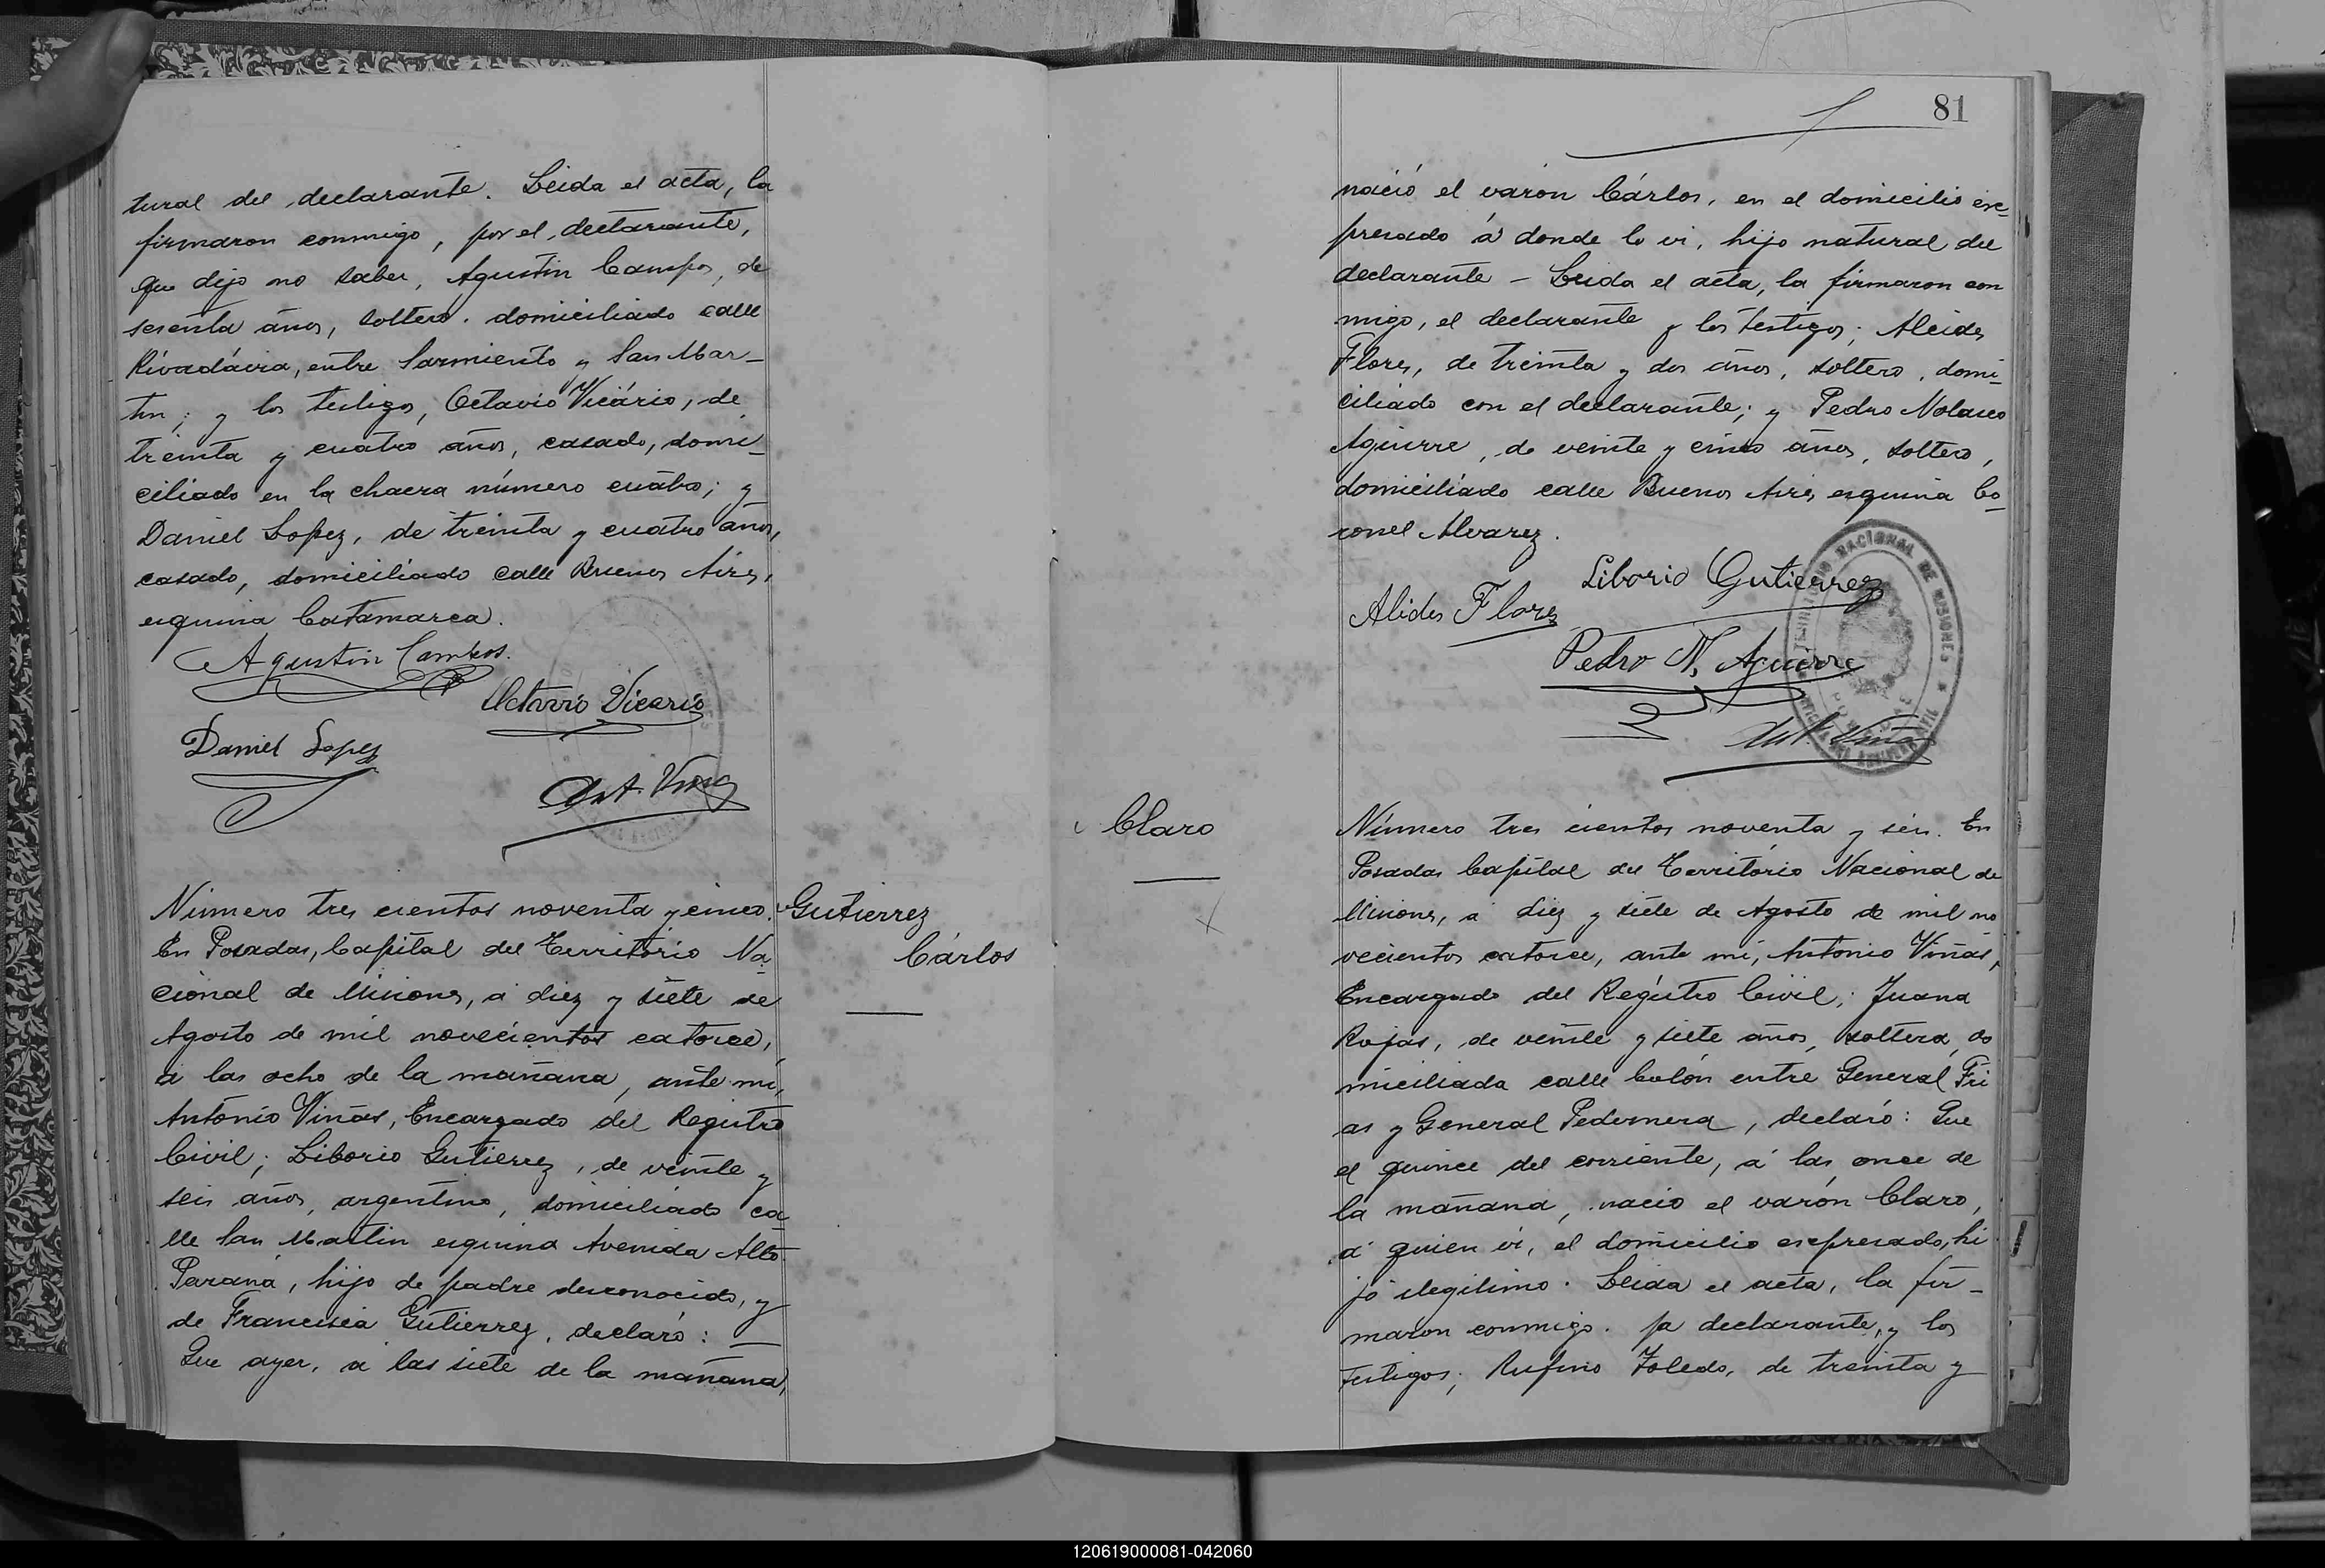 tural del declarante. Leida el acta, la
firmaron conmigo, por el declarante,
que dijo no saber, Agustin Campos, de
sesenta años, soltero. domiciliado calle
Rivadávia, entre Sarmiento y San Mar-
tin; y los testigos, Octavio Vicário, de
treinta y cuatro años, casado, domi-
ciliado en la chacra número cuatro; y
Daniel Lopez, de treinta y cuatro años,
casado, domiciliado calle Buenos Aires,
esquina Catamarca.
Agustin Campos.
Octavio Vicario
Daniel Lopez
Ant. Viñas
Número tres cientos noventa y cinco.
Gutierrez
Cárlos
En Posadas, Capital del Territorio Na-
cional de Misiones, á diez y siete de
Agosto de mil novecientos catorce,
á las ocho de la mañana, ante mi,
Antonio Viñas, Encargado del Registro
Civil; Liborio Gutierrez, de veinte y
seis años, argentino, domiciliado ca-
lle San Martin esquina Avenida Alto
Paraná, hijo de padre desconocido, y
de Francisca Gutierrez, declaró: —
Que ayer, á las siete de la mañana,
81
nació el varón Cárlos, en el domicilio ex-
presado á donde lo vi, hijo natural del
declarante - Leida el acta, la firmaron con
migo, el declarante y los testigos; Alcides
Flores, de treinta y dos años, soltero, domi-
ciliado con el declarante; y Pedro Nolasco
Aguirre, de veinte y cinco años, soltero,
domiciliado calle Buenos Aires esquina Co-
ronel Alvarez.
Liborio Gutierrez
Alides Flores
Pedro N. Aguirre
Ant. Viñas
TERRITORIO NACIONAL DE MISIONES
Claro
Número tres cientos noventa y seis. En
Posadas Capital del Território Nacional de
Misiones, á diez y siete de Agosto de mil no
vecientos catorce, ante mi, Antonio Viñas,
Encargado del Registro Civil; Juana
Rojas, de veinte y siete años, soltera, do
miciliada calle Colón entre General Fri
as y General Pedernera, declaró: Que
el quince del corriente, á las once de
la mañana, nació el varón Claro,
á quien vi, el domicilio expresado, hi
jo ilegitimo. Leida el acta, la fir-
maron conmigo. la declarante, y los
testigos; Rufino Toledo, de treinta y
120619000081-042060